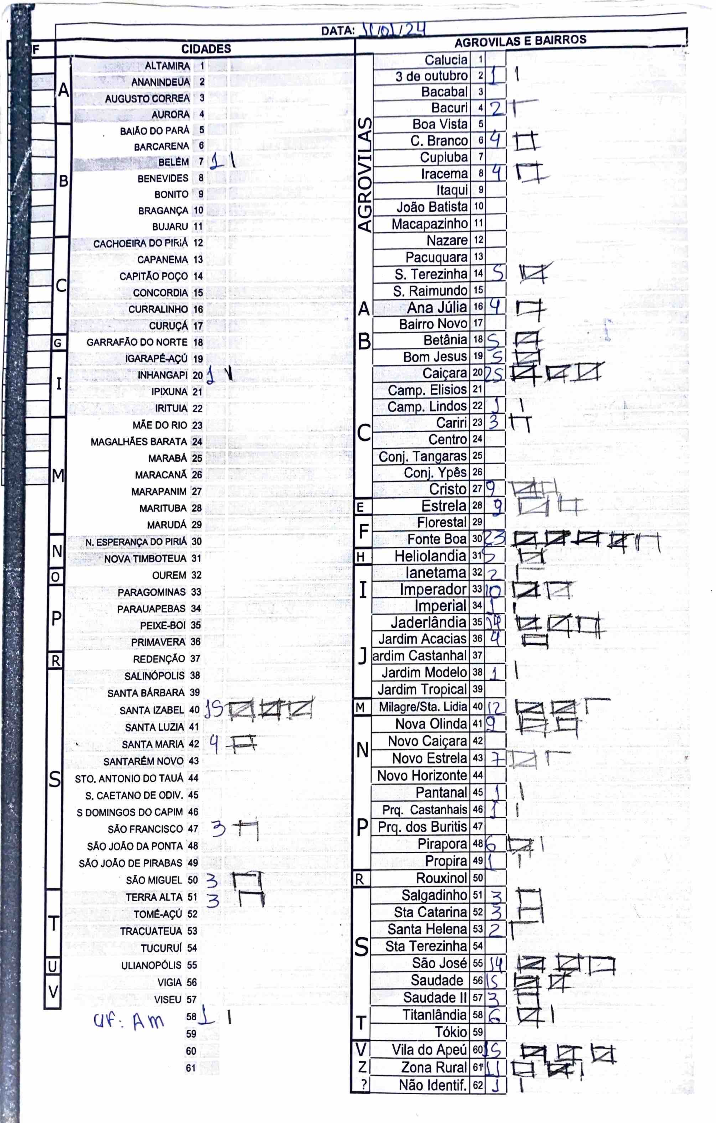 DATA: 11/01/24
F
CIDADES
AGROVILAS E BAIRROS
A
ALTAMIRA 1
ANANINDEUA 2
AUGUSTO CORREA 3
AURORA 4
B
BAIÃO DO PARÁ 5
BARCARENA 6
BELÉM 7 1
BENEVIDES 8
BONITO 9
BRAGANÇA 10
BUJARU 11
C
CACHOEIRA DO PIRIÁ 12
CAPANEMA 13
CAPITÃO POÇO 14
CONCORDIA 15
CURRALINHO 16
CURUÇÁ 17
G
GARRAFÃO DO NORTE 18
I
IGARAPÉ-AÇÚ 19
INHANGAPI 20 1
IPIXUNA 21
IRITUIA 22
M
MÃE DO RIO 23
MAGALHÃES BARATA 24
MARABÁ 25
MARACANÃ 26
MARAPANIM 27
MARITUBA 28
MARUDÁ 29
N
N. ESPERANÇA DO PIRIÁ 30
NOVA TIMBOTEUA 31
O
OUREM 32
P
PARAGOMINAS 33
PARAUAPEBAS 34
PEIXE-BOI 35
PRIMAVERA 36
R
REDENÇÃO 37
S
SALINÓPOLIS 38
SANTA BÁRBARA 39
SANTA IZABEL 40 15
SANTA LUZIA 41
SANTA MARIA 42 4
SANTARÉM NOVO 43
STO. ANTONIO DO TAUÁ 44
S. CAETANO DE ODIV. 45
S DOMINGOS DO CAPIM 46
SÃO FRANCISCO 47 3
SÃO JOÃO DA PONTA 48
SÃO JOÃO DE PIRABAS 49
SÃO MIGUEL 50 3
T
TERRA ALTA 51 3
TOMÉ-AÇÚ 52
TRACUATEUA 53
TUCURUÍ 54
U
ULIANÓPOLIS 55
V
VIGIA 56
VISEU 57
UF: Am 58 1
59
60
61
AGROVILAS
Calucia 1
3 de outubro 2 1
Bacabal 3
Bacuri 4 2
Boa Vista 5
C. Branco 6 4
Cupiuba 7
Iracema 8 4
Itaqui 9
João Batista 10
Macapazinho 11
Nazare 12
Pacuquara 13
S. Terezinha 14 5
S. Raimundo 15
A
Ana Júlia 16 4
Bairro Novo 17
B
Betânia 18 5
Bom Jesus 19 5
Caiçara 20 25
Camp. Elisios 21
Camp. Lindos 22 1
C
Cariri 23 3
Centro 24
Conj. Tangaras 25
Conj. Ypês 26
Cristo 27 9
E
Estrela 28 9
F
Florestal 29
Fonte Boa 30 23
H
Heliolandia 31 5
I
Ianetama 32 2
Imperador 33 10
Imperial 34 1
Jaderlândia 35
Jardim Acacias 36 4
J
ardim Castanhal 37
Jardim Modelo 38 1
Jardim Tropical 39
M
Milagre/Sta. Lidia 40 12
N
Nova Olinda 41 9
Novo Caiçara 42
Novo Estrela 43 7
Novo Horizonte 44
Pantanal 45 1
P
Prq. Castanhais 46 1
Prq. dos Buritis 47
Pirapora 48 6
Propira 49 1
R
Rouxinol 50
S
Salgadinho 51 3
Sta Catarina 52 3
Santa Helena 53 2
Sta Terezinha 54
São José 55 14
Saudade 56 15
Saudade II 57 3
T
Titanlândia 58 6
Tókio 59
V
Vila do Apeú 60 15
Z
Zona Rural 61 11
?
Não Identif. 62 1